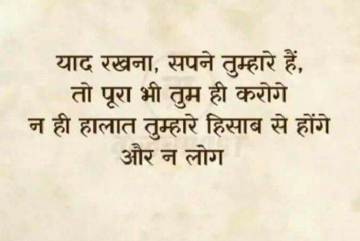 याद रखना, सपने तुम्हारे हैं,
तो पूरा भी तुम ही करोगे
न ही हालात तुम्हारे हिसाब से होंगे
और न लोग